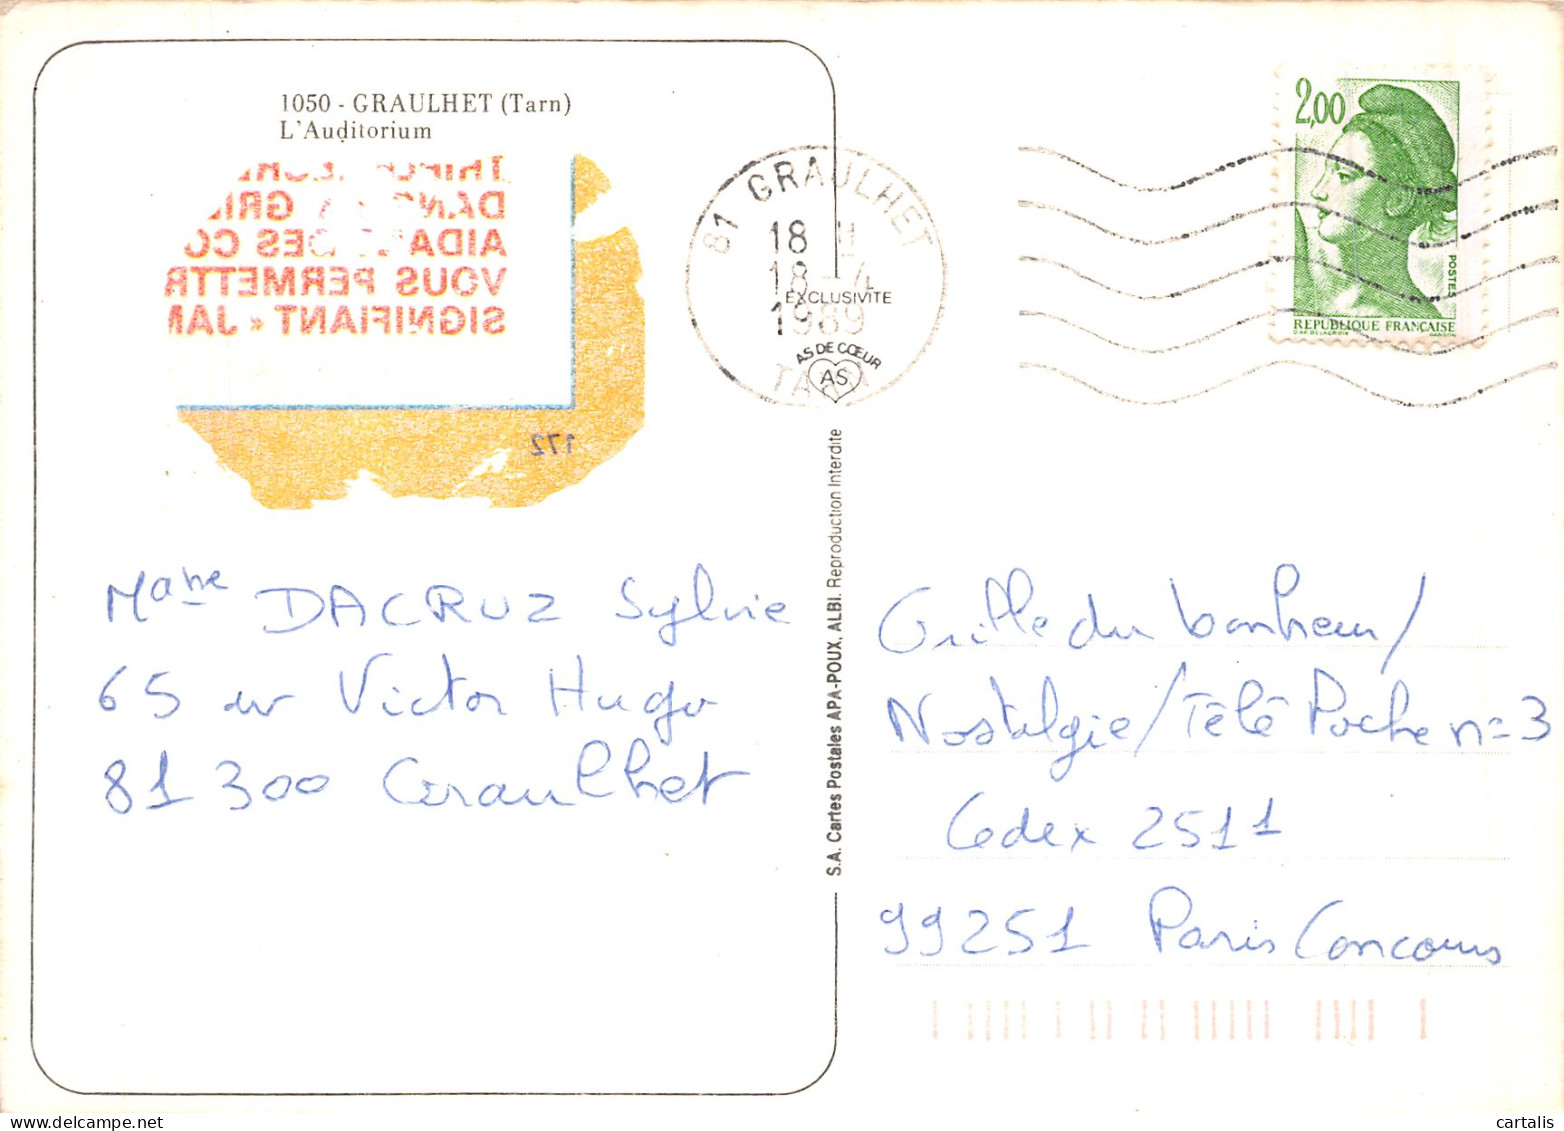 1050 - GRAULHET (Tarn)
L'Auditorium
DANS GRI
AIDA DES CO
VOUS PERMETTR
SIGNIFIANT « JAM
172
81 GRAULHET
18 H
18 - 4
1989
TARN
EXCLUSIVITE
AS DE CŒUR
AS
2,00
POSTES
REPUBLIQUE FRANÇAISE
D'AP. DELACROIX GANDON
S.A. Cartes Postales APA-POUX, ALBI. Reproduction Interdite
DACRUZ Sylvie
65 av Victor Hugo
81 300 Graulhet
Grille du bonheur/
Nostalgie/Télé Poche n=3
Cedex 2511
99251 Paris Concours
cartalis